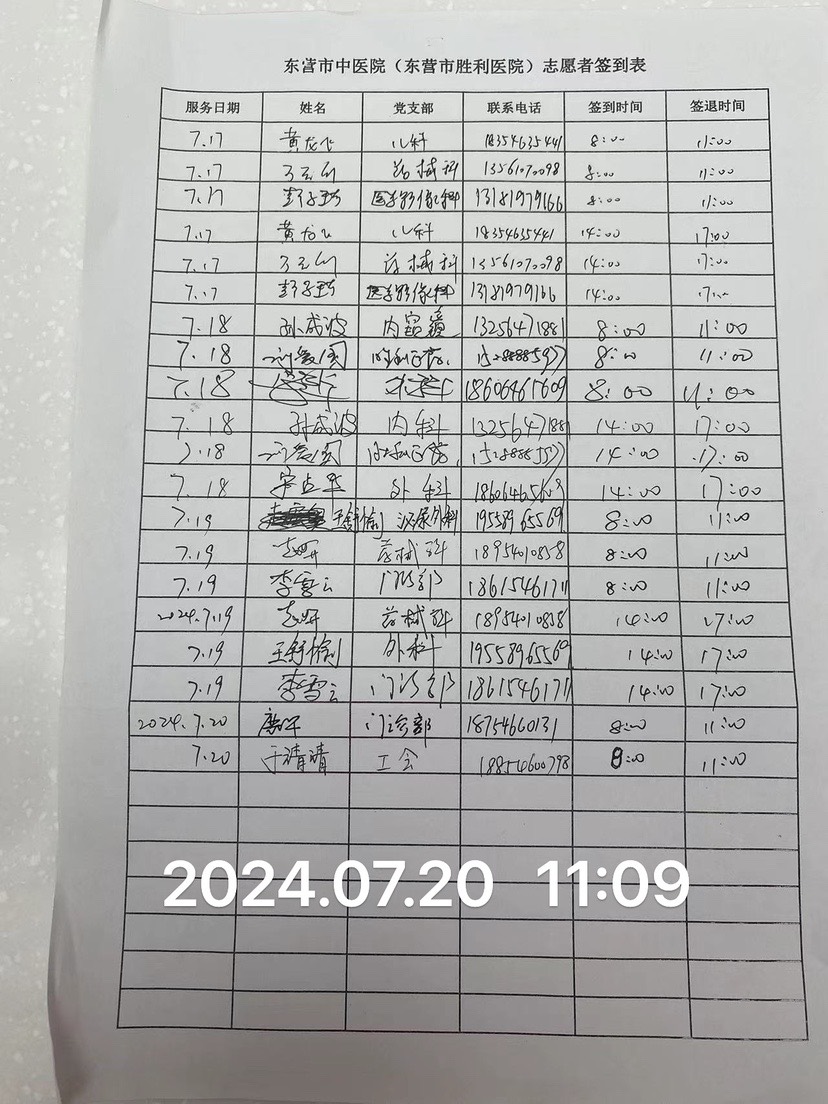 东营市中医院（东营市胜利医院）志愿者签到表
服务日期 姓名 党支部 联系电话 签到时间 签退时间
7.17 黄龙飞 儿科 18354635441 8:00 11:00
7.17 药械科 13561070098 8:00 11:00
7.17 医学影像科 13181979166 8:00 11:00
7.17 黄龙飞 儿科 18354635441 14:00 17:00
7.17 药械科 13561070098 14:00 17:00
7.17 医学影像科 13181979166 14:00
7.18 孙成波 13256471881 8:00 11:00
7.18 8:00 11:00
7.18 18606461609 8:00 11:00
7.18 孙成波 内科 13256471881 14:00 17:00
7.18 14:00 17:00
7.18 外科 14:00 17:00
7.19 泌尿外科 19558965569 8:00 11:00
7.19 药械科 18954010858 8:00 11:00
7.19 李雪云 门诊部 18615461711 8:00 11:00
2024.7.19 药械科 18954010858 14:00 17:00
7.19 外科 19558965569 14:00 17:00
7.19 李雪云 门诊部 18615461711 14:00 17:00
2024.7.20 门诊部 18754660131 8:00 11:00
7.20 于清清 工会 18854600798 8:00 11:00
2024.07.20 11:09